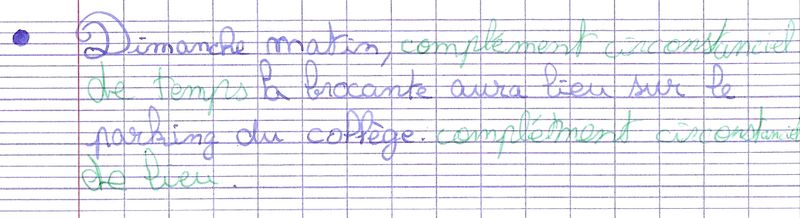 Dimanche matin, complément circonstanciel
de temps la brocante aura lieu sur le
parking du collège. complément circonstanciel
de lieu.